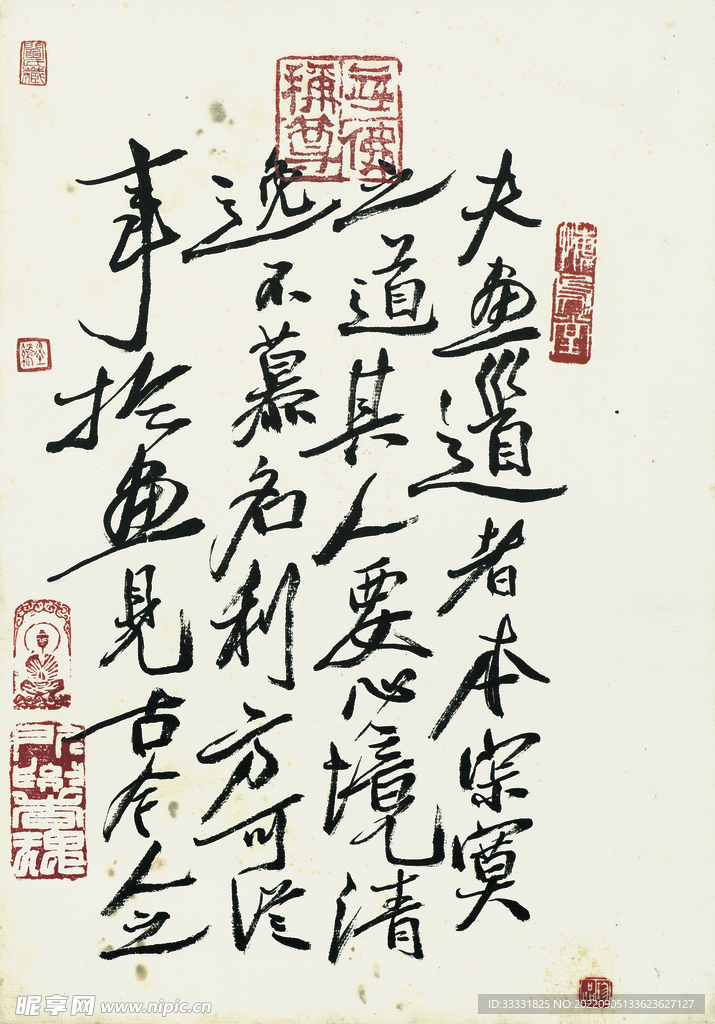 無佛稱尊
悔烏堂
夫畫道者本寂寞
之道其人要心境清
逸不慕名利方可從
事於畫見古今人之
昵享网 www.nipic.cn
ID:33331825 NO:20220905133623627127